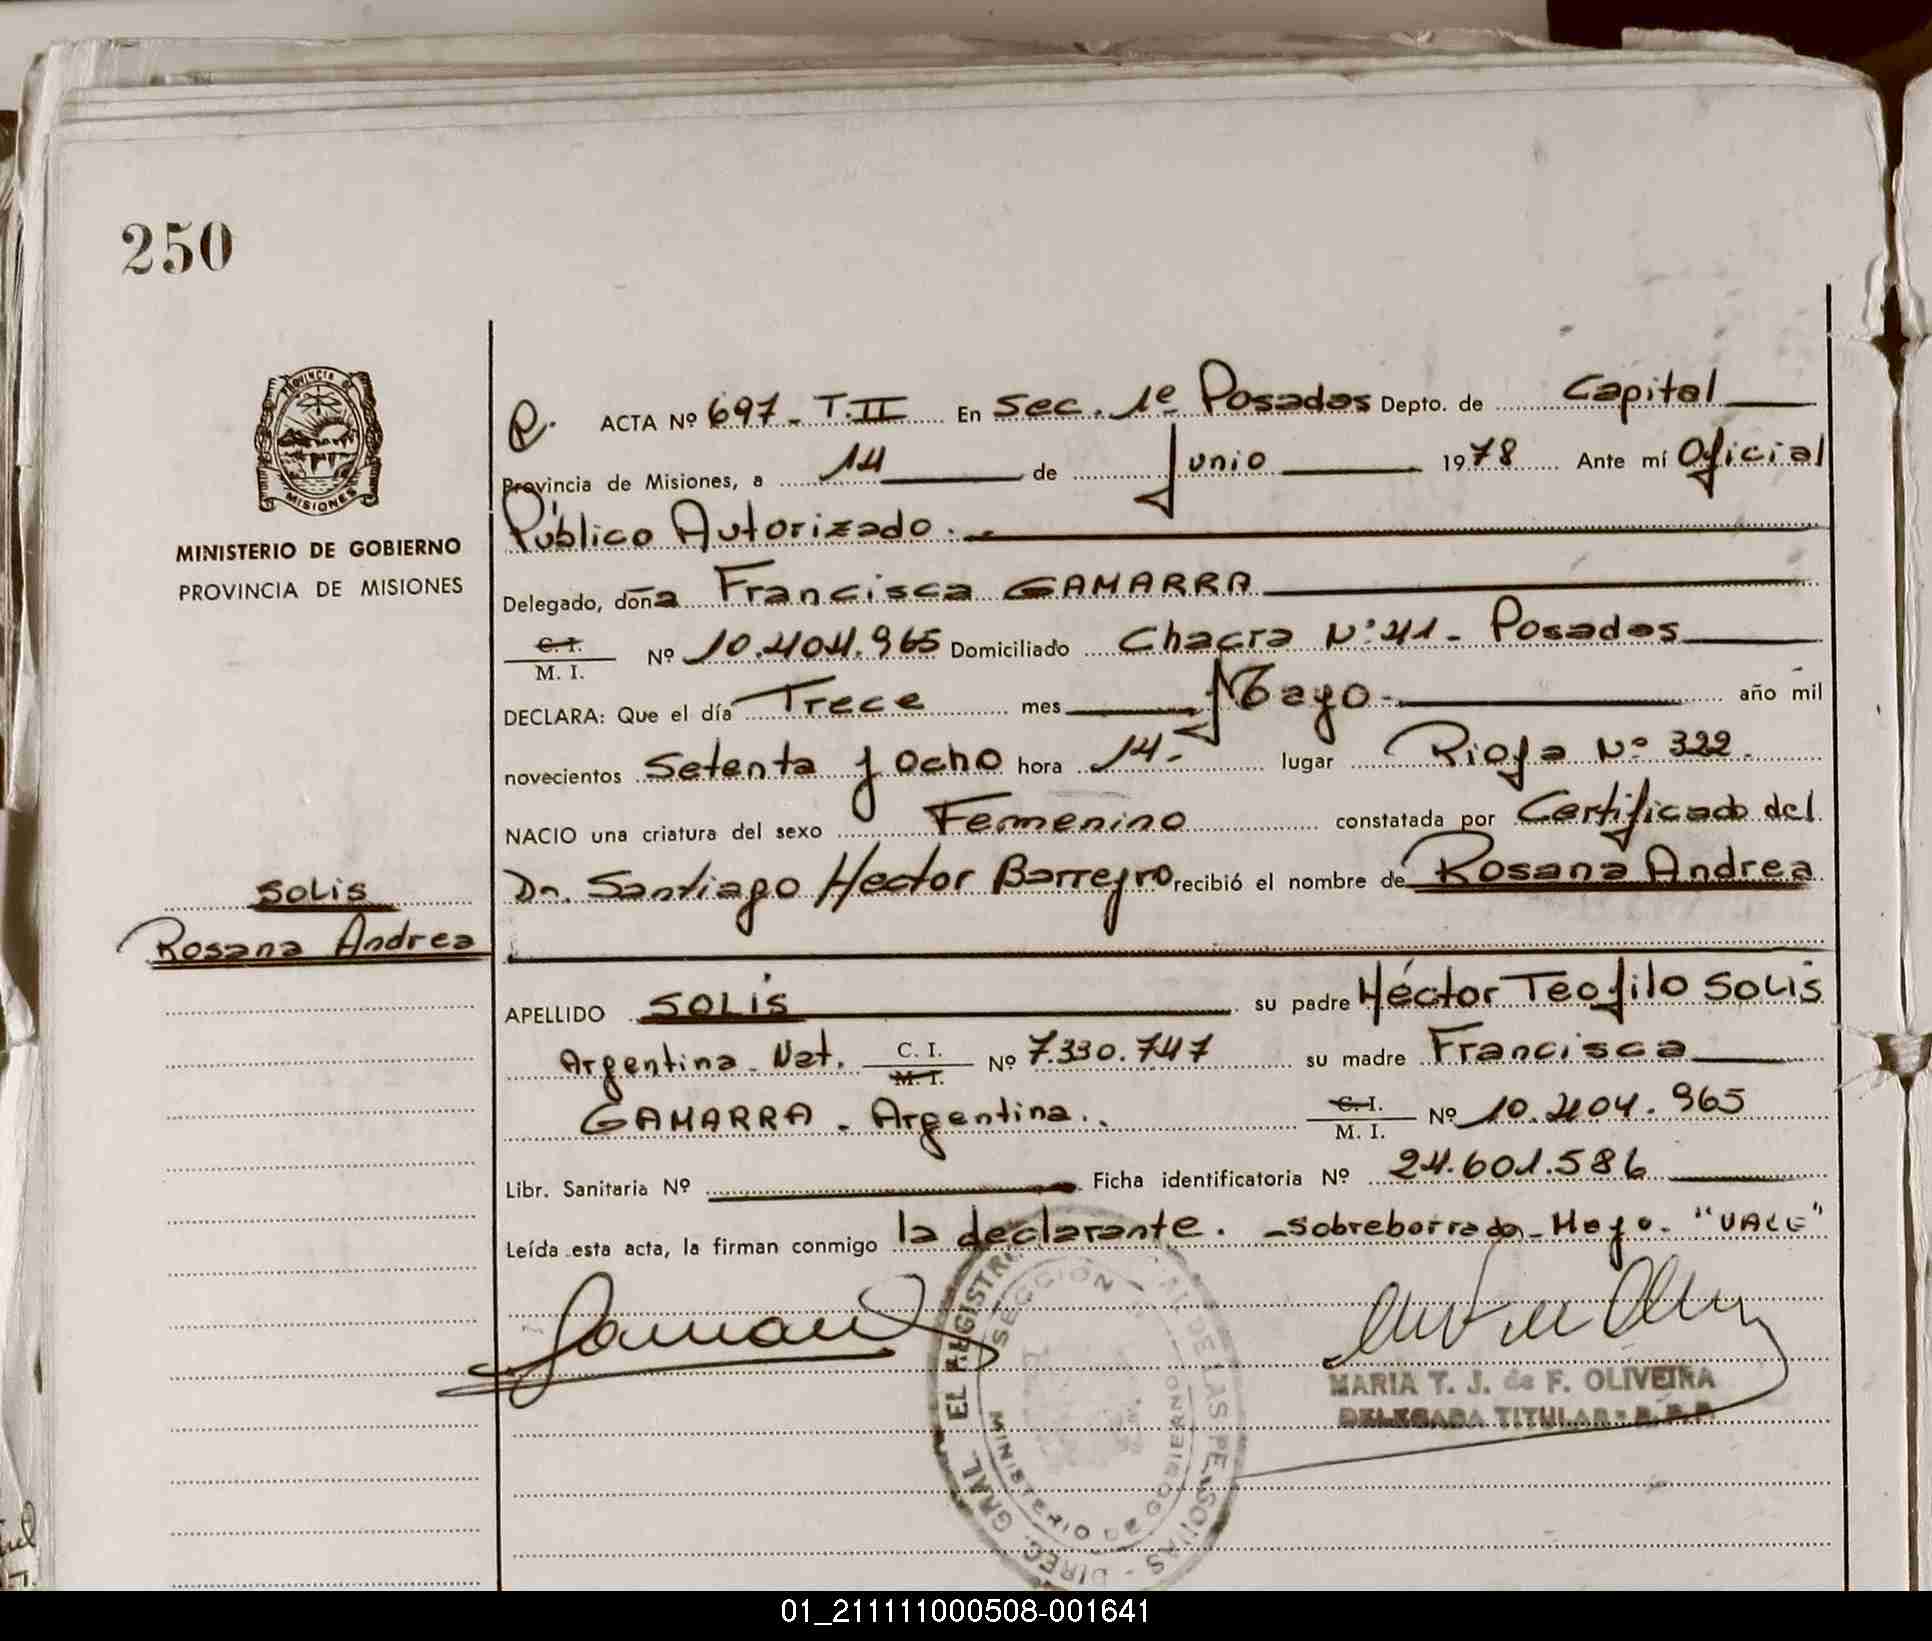 250
PROVINCIA DE
MISIONES
MINISTERIO DE GOBIERNO
PROVINCIA DE MISIONES
SOLIS
Rosana Andrea
R. ACTA Nº 697 - T.II En Sec. 1º Posadas Depto. de Capital
Provincia de Misiones, a 14 de Junio 1978 Ante mí Oficial
Público Autorizado.
Delegado, doña Francisca GAMARRA
C. I. / M. I. Nº 10.404.965 Domiciliado Chacra Nº 41 - Posadas
DECLARA: Que el día Trece mes Mayo año mil
novecientos Setenta y ocho hora 14.- lugar Rioja Nº 322.
NACIO una criatura del sexo Femenino constatada por Certificado del
Dr. Santiago Hector Barreyro recibió el nombre de Rosana Andrea
APELLIDO SOLIS su padre Héctor Teofilo SOLIS
Argentina - Nat. C. I. / M. I. Nº 7.330.747 su madre Francisca
GAMARRA - Argentina. C. I. / M. I. Nº 10.404.965
Libr. Sanitaria Nº Ficha identificatoria Nº 24.601.586
Leída esta acta, la firman conmigo la declarante. - Sobreborrado - Mayo - "VALE"
MARIA T. J. de F. OLIVEIRA
DELEGADA TITULAR - R.P.P.
DIREC. GRAL. EL REGISTRO DE LAS PERSONAS
SECCION
MINISTERIO DE GOBIERNO
01_211111000508-001641